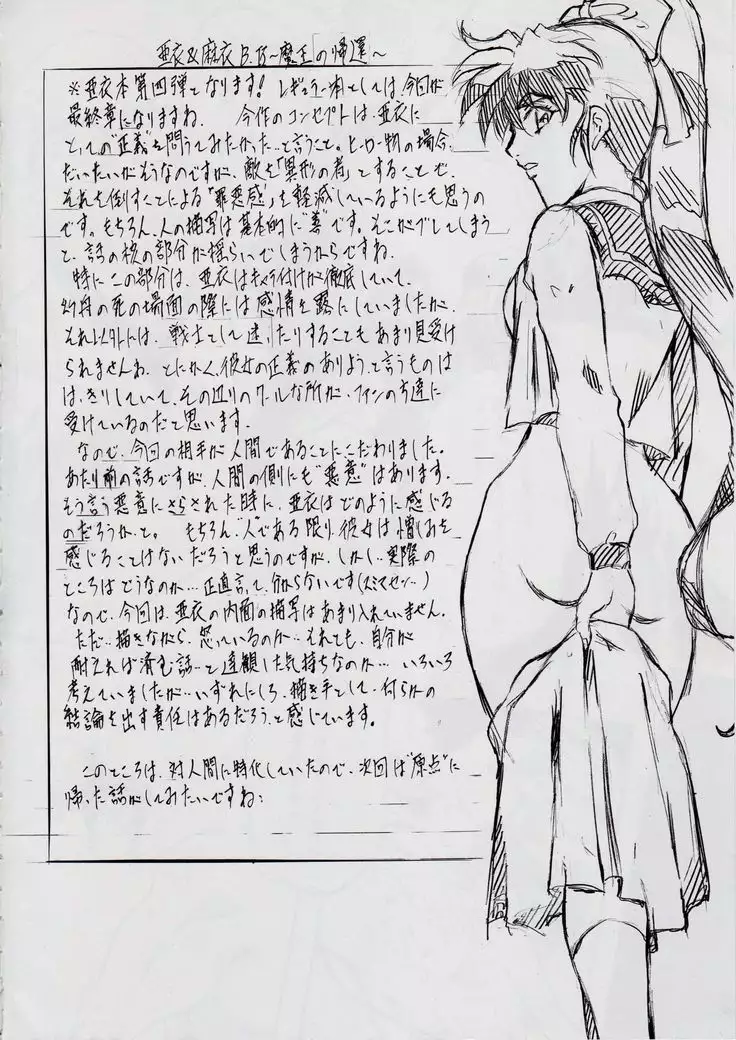 亜衣&麻衣B.B~魔王の帰還~
※亜衣本第四弾となります! レギュラー本としては、今回が
最終章になりますね. 今作のコンセプトは、亜衣に
とっての"正義"を問うてみたかった…と言うこと。ヒーロー物の場合、
だいたいがそうなのですが、敵を「異形の者」とすることで、
それを倒すことによる"罪悪感"を軽減しているようにも思うの
です。もちろん、人の描写は基本的に"善"です。そこがブレてしまう
と、話の核の部分が揺らいでしまうからですね.
特にこの部分は、亜衣はキャラ付けが徹底していて、
の死の場面の際には感情を露にしていましたが、
それ以外には、戦士として迷ったりすることもあまり見受け
られませんね. とにかく、彼女の正義のありよう、と言うものは
はっきりしていて、その辺りのクールな所が、ファンの方達に
受けているのだと思います.
なので、今回の相手が人間であることにこだわりました.
あたり前の話ですが、人間の側にも"悪意"はあります.
そう言う悪意にさらされた時に、亜衣はどのように感じる
のだろうか、と. もちろん、"人"である限り、彼女は憎しみを
感じることはないだろうと思うのですが、しかし…実際の
ところはどうなのか…正直言って、分からないです(スミマセン…)
なので、今回は、亜衣の内面の描写はあまり入れていません.
ただ…描きながら、怒っているのか…それでも、自分が
耐えれば済む話…と達観した気持ちなのか… いろいろ
考えていましたが…いずれにしろ、描き手として、何らかの
結論を出す責任はあるだろう、と感じています。
このところは、対人間に特化していたので、次回は"原点"に
帰った話がしてみたいですね: